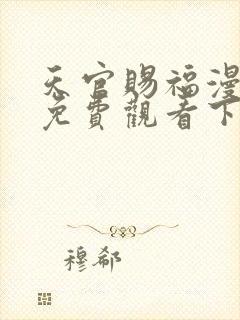 天官賜福漫
免費觀看下
穆郗